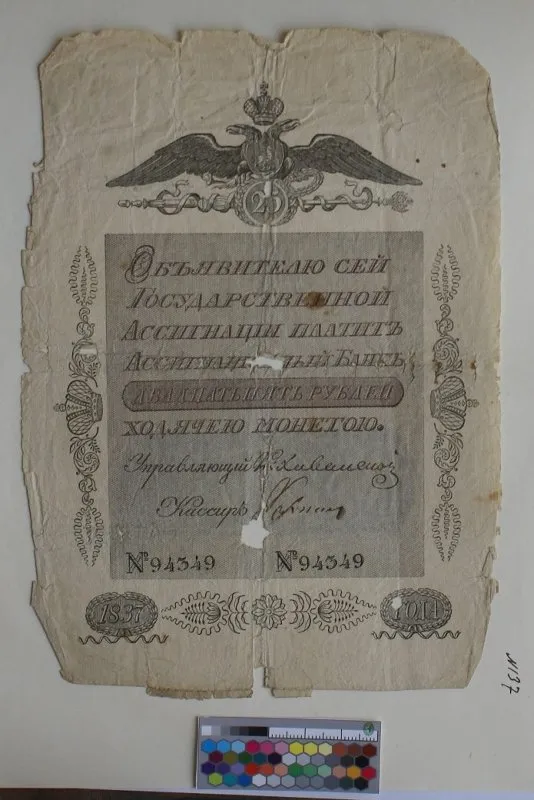 25
Объявителю сей
Государственной
Ассигнаціи платитъ
Банкъ
двадцать пять рублей
ходячею монетою.
Управляющий
Кассиръ
№ 94349 № 94349
1837 года
№137